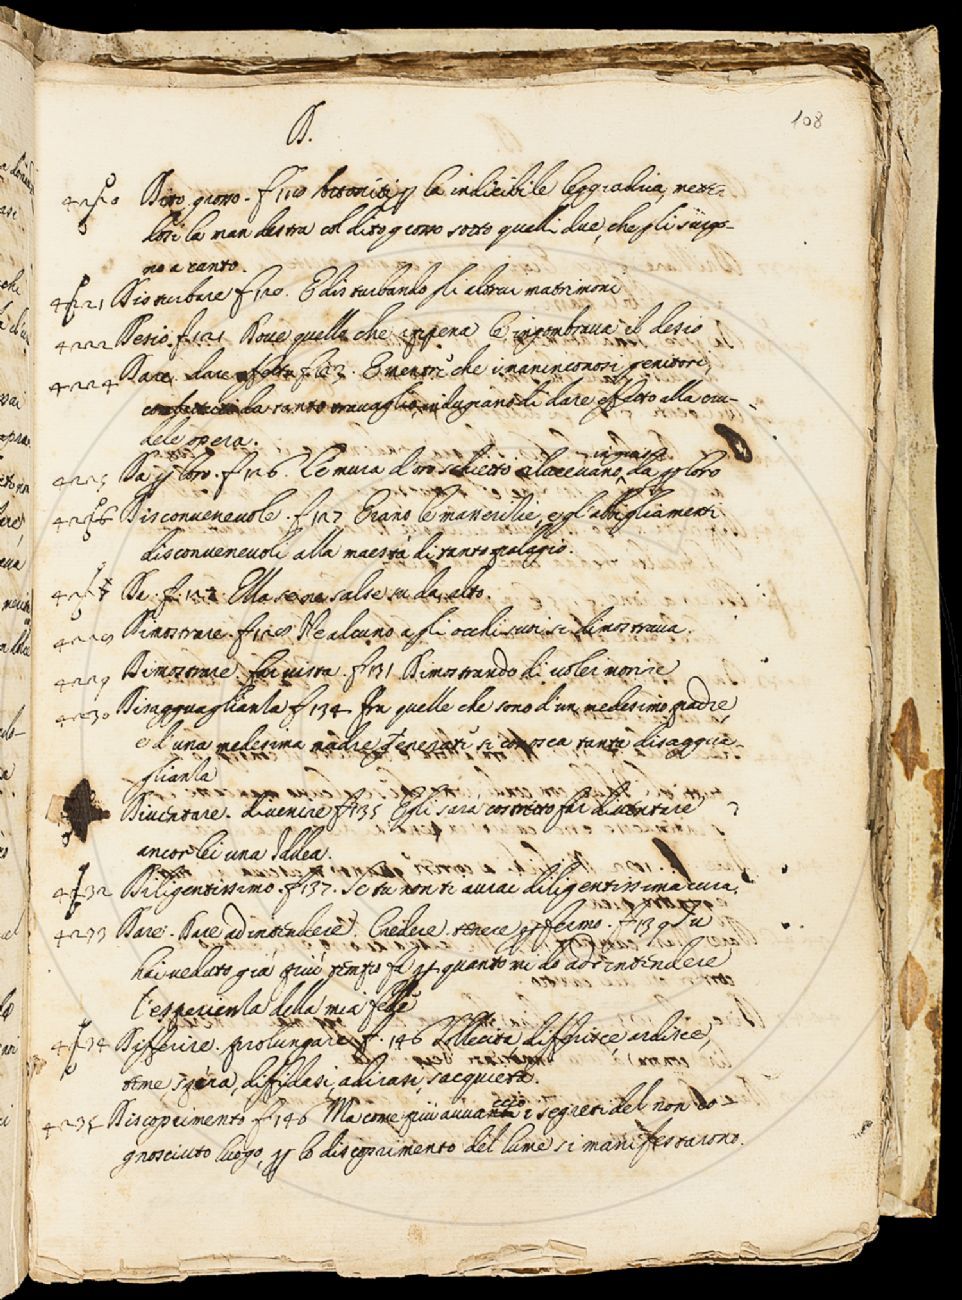 108
D.
Dito grosso. f 120 per la indicibile leggiadria, mette-
dosi la man destra col dito grosso sotto quelli due, che gli surgo-
no a canto.
Disturbare f 120. E disturbando gli altrui matrimoni
4222 Desio. f 121 Dove quella che appena le ingombrava il desio
4224 Dare. dare effetto f 123. E mentre che i genitori
da tanto travaglio, indugiano di dare effetto alla cru-
dele opera.
4225 Da per loro. f 126 Le mura d'oro schietto rilucevano, da per loro
Disconvenevole. f 127 Erano le masserizie, e gl'abbigliamenti
disconvenevoli alla maestà di tanto palagio.
Da. f 127 Ella se ne salse su da alto.
4228 Dimostrare. f 128 Ne alcuno a gli occhi suoi si dimostrava.
4229 Dimostrare. far vista. f 131 Dimostrando di voler morire
4230 Disagguaglianza f 134 In quelle che sono d'un medesimo padre,
e d'una medesima madre generati si conosca tanta disaggua-
glianza
Diventare. divenire f 135 Egli sara costretto far diventare
ancor lei una Iddea.
4232 Diligentissimo. f 137. Se tu non ti avrai diligentissima cura,
4233 Dare. Dare ad intendere. Credere tenere per fermo. f 139 Tu
hai veduto già più tempo fa per quanto mi do ad intendere
l'esperienza della mia fede
4234 Differire. prolungare f. 146 Sollecita differisce ardisce,
teme spera, diffidasi, adirasi, s'acquieta.
4235 Discoprimento f 146 Ma come più avvanti i segreti del non co-
gnosciuto luogo, per lo discoprimento del lume si manifestarono.